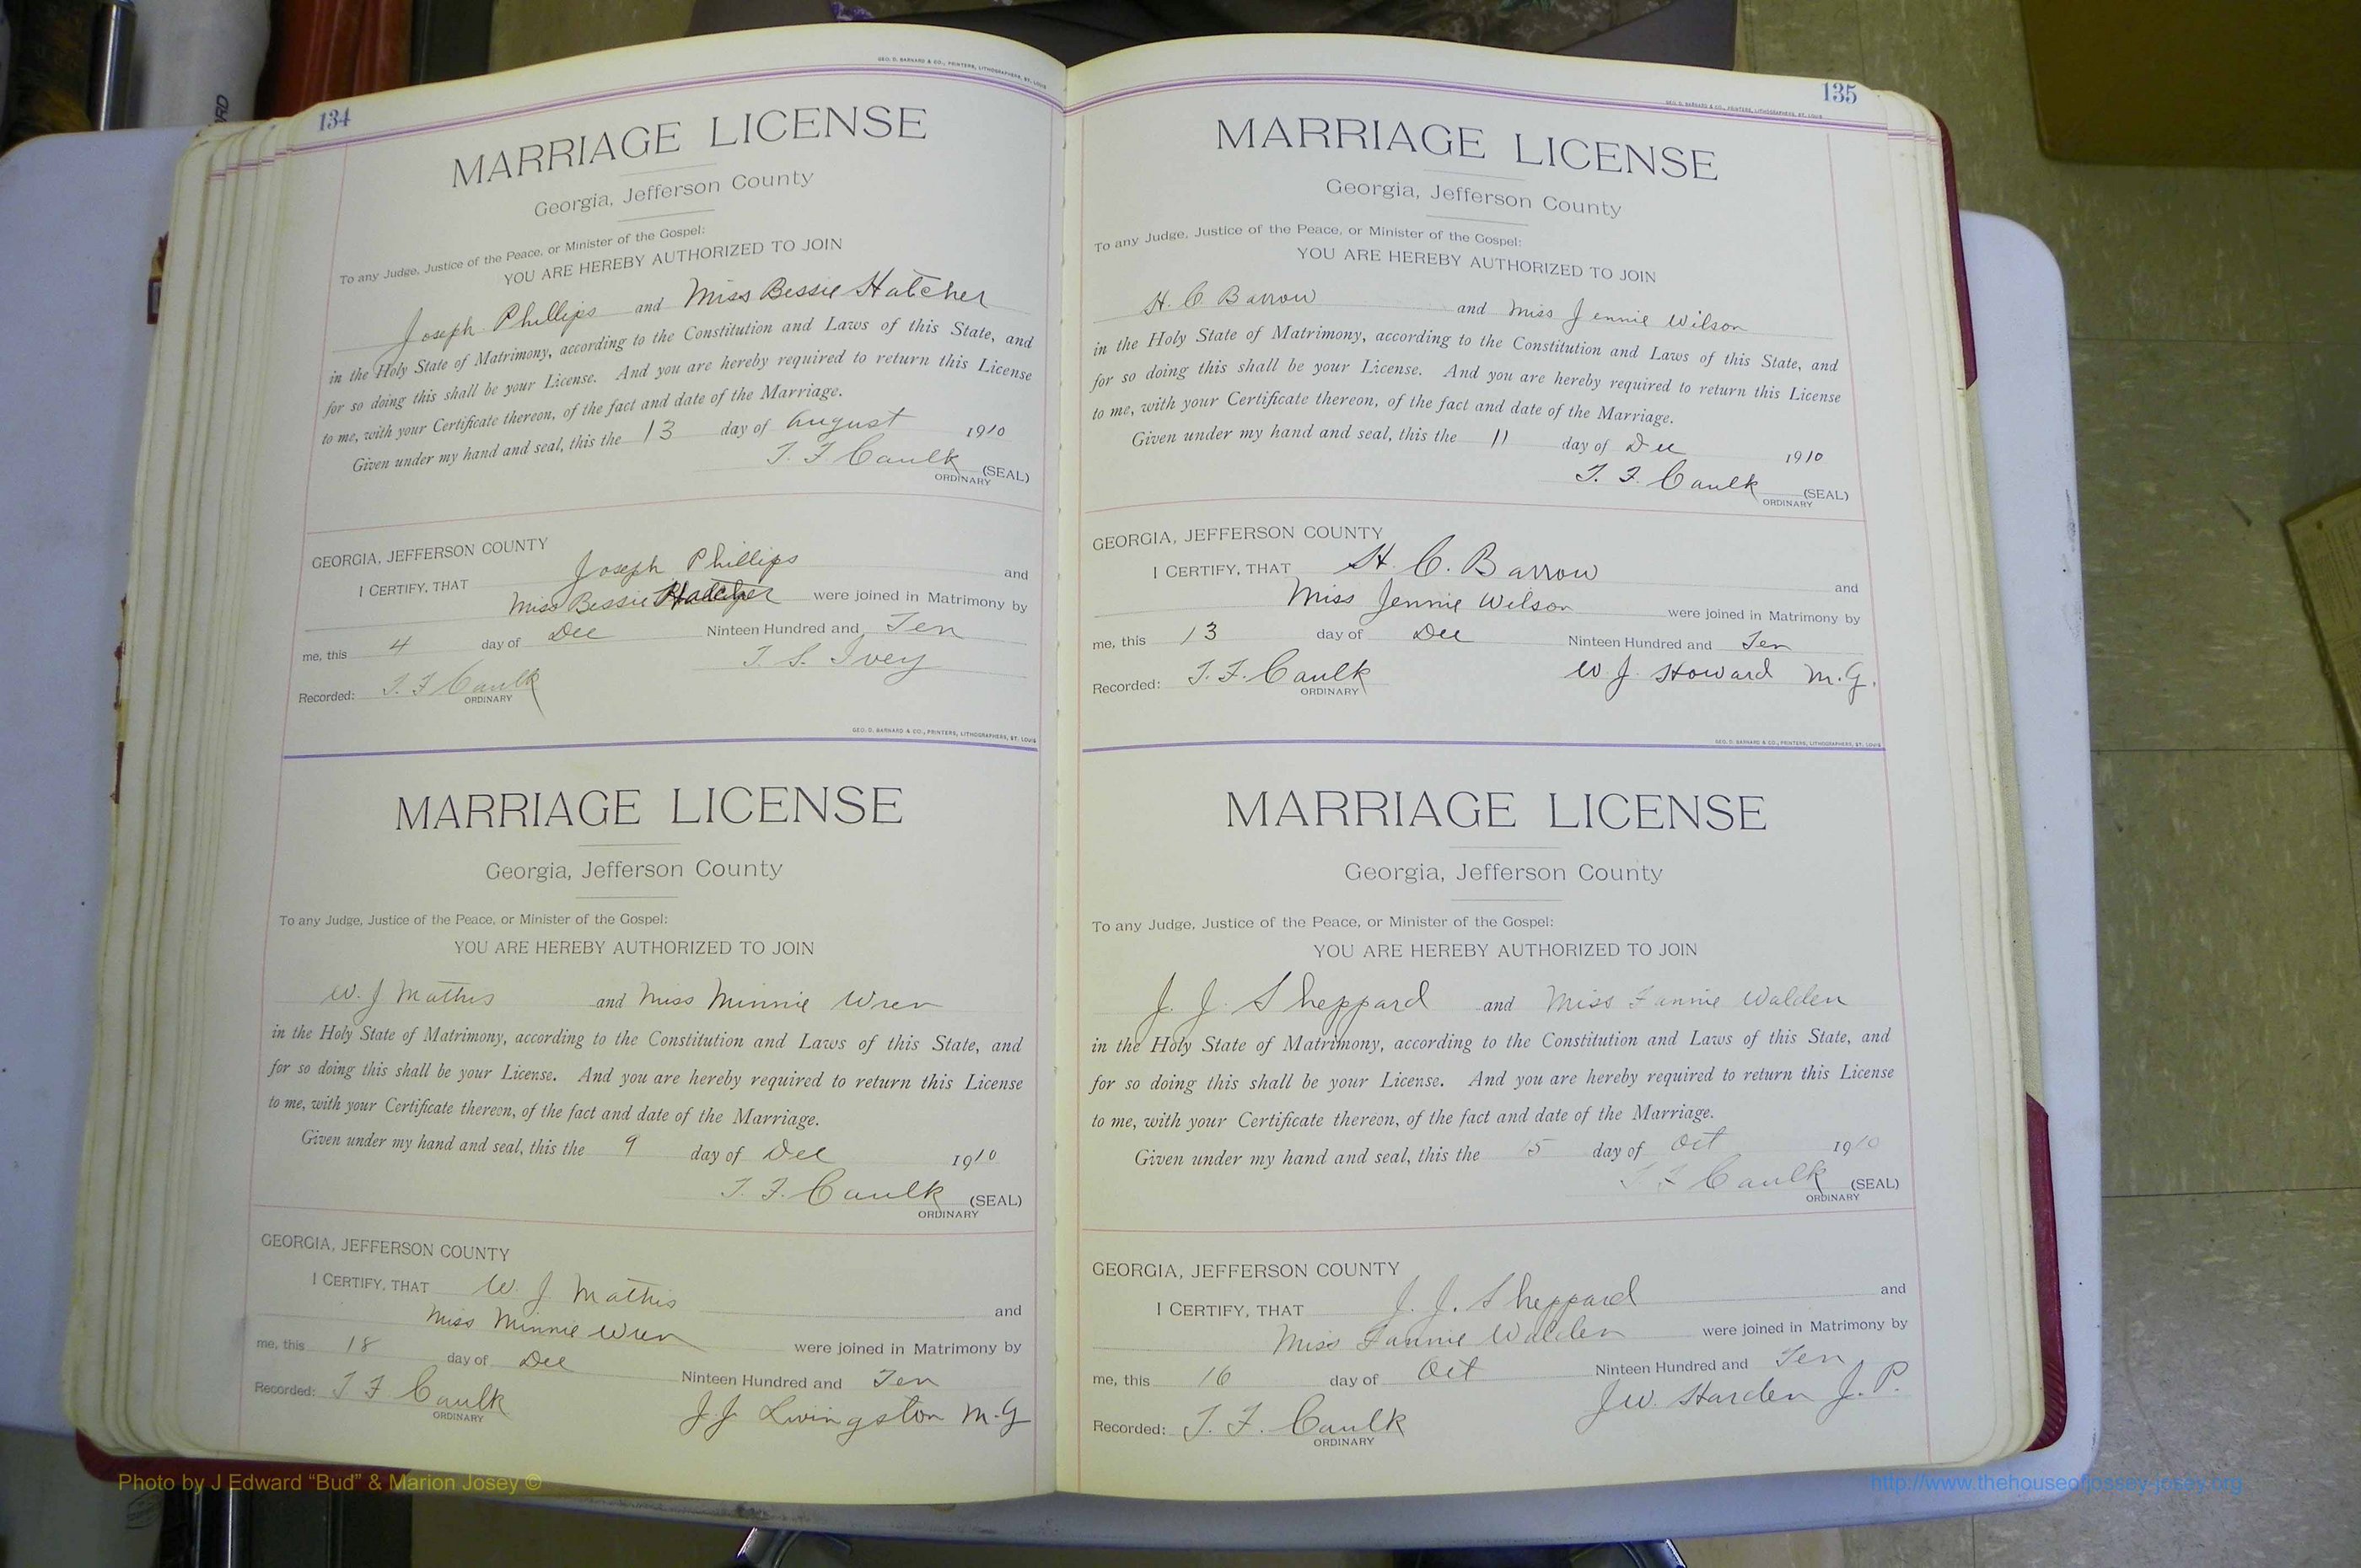 134
GEO. D. BARNARD & CO., PRINTERS, LITHOGRAPHERS, ST. LOUIS
MARRIAGE LICENSE
Georgia, Jefferson County
To any Judge, Justice of the Peace, or Minister of the Gospel:
YOU ARE HEREBY AUTHORIZED TO JOIN
Joseph Phillips and Miss Bessie Hatcher
in the Holy State of Matrimony, according to the Constitution and Laws of this State, and
for so doing this shall be your License. And you are hereby required to return this License
to me, with your Certificate thereon, of the fact and date of the Marriage.
Given under my hand and seal, this the 13 day of August 1910
T. F Caulk (SEAL)
ORDINARY
GEORGIA, JEFFERSON COUNTY
I CERTIFY, THAT Joseph Phillips and
Miss Bessie Hatcher were joined in Matrimony by
me, this 4 day of Dec Ninteen Hundred and Ten
T. S. Ivey
Recorded: T. F Caulk
ORDINARY
GEO. D. BARNARD & CO., PRINTERS, LITHOGRAPHERS, ST. LOUIS
MARRIAGE LICENSE
Georgia, Jefferson County
To any Judge, Justice of the Peace, or Minister of the Gospel:
YOU ARE HEREBY AUTHORIZED TO JOIN
W. J Mathis and Miss Minnie Wren
in the Holy State of Matrimony, according to the Constitution and Laws of this State, and
for so doing this shall be your License. And you are hereby required to return this License
to me, with your Certificate thereon, of the fact and date of the Marriage.
Given under my hand and seal, this the 9 day of Dec 1910
T. F. Caulk (SEAL)
ORDINARY
GEORGIA, JEFFERSON COUNTY
I CERTIFY, THAT W. J Mathis and
Miss Minnie Wren were joined in Matrimony by
me, this 18 day of Dec Ninteen Hundred and Ten
Recorded: T F Caulk J. J. Livingston M. G
ORDINARY
135
GEO. D. BARNARD & CO., PRINTERS, LITHOGRAPHERS, ST. LOUIS
MARRIAGE LICENSE
Georgia, Jefferson County
To any Judge, Justice of the Peace, or Minister of the Gospel:
YOU ARE HEREBY AUTHORIZED TO JOIN
H. C Barrow and Miss Jennie Wilson
in the Holy State of Matrimony, according to the Constitution and Laws of this State, and
for so doing this shall be your License. And you are hereby required to return this License
to me, with your Certificate thereon, of the fact and date of the Marriage.
Given under my hand and seal, this the 11 day of Dec 1910
T. F. Caulk (SEAL)
ORDINARY
GEORGIA, JEFFERSON COUNTY
I CERTIFY, THAT H. C. Barrow and
Miss Jennie Wilson were joined in Matrimony by
me, this 13 day of Dec Ninteen Hundred and Ten
Recorded: T. F. Caulk W J. Howard M. G.
ORDINARY
GEO. D. BARNARD & CO., PRINTERS, LITHOGRAPHERS, ST. LOUIS
MARRIAGE LICENSE
Georgia, Jefferson County
To any Judge, Justice of the Peace, or Minister of the Gospel:
YOU ARE HEREBY AUTHORIZED TO JOIN
J. J. Sheppard and Miss Fannie Walden
in the Holy State of Matrimony, according to the Constitution and Laws of this State, and
for so doing this shall be your License. And you are hereby required to return this License
to me, with your Certificate thereon, of the fact and date of the Marriage.
Given under my hand and seal, this the 15 day of Oct 1910
T F Caulk (SEAL)
ORDINARY
GEORGIA, JEFFERSON COUNTY
I CERTIFY, THAT J. J. Sheppard and
Miss Fannie Walden were joined in Matrimony by
me, this 16 day of Oct Ninteen Hundred and Ten
J W. Harden J. P.
Recorded: T. F. Caulk
ORDINARY
Photo by J Edward “Bud” & Marion Josey ©
http://www.thehouseofjossey-josey.org